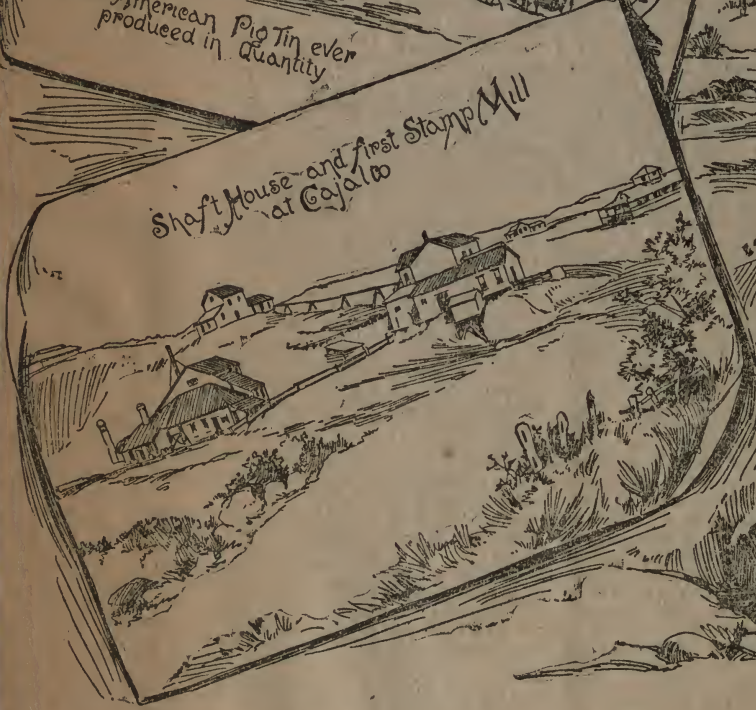 American Pig Tin ever
produced in Quantity
Shaft House and first Stamp Mill
at Cajalco